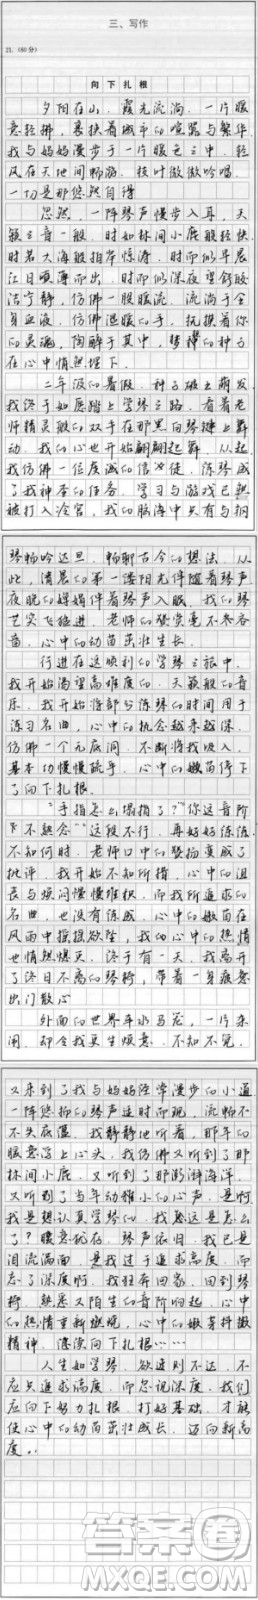 三、写作
21.（60分）
向下扎根
夕阳在山，霞光流淌，一片暖
意轻拂，裹挟着城市的喧嚣与繁华
我与妈妈漫步于一片暖色之中，轻
风在天地间畅游，枝叶微微吟唱
一切是那悠然自得
忽然，一阵琴声慢步入耳，天
籁之音一般，时如林间小鹿般轻快
时若大海般拍岸惊涛，时而似早晨
江日喷薄而出，时而似深夜
洁宁静，仿佛一股暖流，流淌于全
身血液，仿佛温暖的手，抚摸着你
的灵魂，陶醉于其中，梦的种子
在心中悄然埋下。
二年级的暑假，种子破土萌发
我终于如愿踏上学琴之路，看着老
师精灵般的双手在那黑白琴键上舞
动，我的心也开始翩翩起舞，从起
我仿佛一位虔诚的信徒，练琴成
了我神圣的任务，学习与游戏已然
被打入冷宫，我的脑海中只有与钢
琴畅吟达旦，畅聊古今的想法，从
此，清晨的第一缕阳光伴随着琴声
夜晚的婵娟伴着琴声入眠，我的琴
艺突飞猛进，老师的赞赏毫不吝啬
啬，心中的幼苗茁壮生长。
行进在这顺利的学琴之旅中，
我开始渴望高难度的，天籁般的音
乐，我开始将部分练琴的时间用于
练习名曲，心中的执念越来越深，
仿佛一个无底洞，不断将我吸入，
基本功慢慢疏乎，心中的嫩苗停下
了向下扎根。
“手指怎么塌指了？”“你这音阶
下不熟念”“这段不行，再好好练练
不知何时，老师口中的赞扬变成了
批评，我开始不知所措，心中的沮
丧与烦闷慢慢堆积，而我所追求的
名曲，也没有练成，心中的嫩苗在
风雨中摇摇欲坠，我的心中的热情
也悄然熄灭，终于有一天，我离开
了终日不离的琴椅，带着一身疲惫
出门散心
外面的世界车水马龙，一片杂
闹，却令我更生烦意，不知不觉，
又来到了我与妈妈经常漫步的小道
一阵悠扬的琴声这时而现，流畅不
不失底蕴，我静静地听着，那年的
暖意涌上心头，我仿佛又听到了那
林间小鹿，又听到了那澎湃海洋，
又听到了当年幼稚小的心声，是啊
我是想认真学琴的，我愁这是怎么
了？暖意犹在，琴声依旧，我已是
泪流满面，是我过于追求高度，而
忘了深度啊，我狂奔回家，回到琴
椅，熟悉又陌生的音阶响起，心中
的热情重新燃烧，心中的嫩芽抖擞
精神，继续向下扎根……
人生如学琴，欲速则不达，不
应只追求高度，而忽视深度，我们
应向下努力扎根，打好基础，才能
使心中的幼苗茁壮成长，迈向新高
度。
答案圈